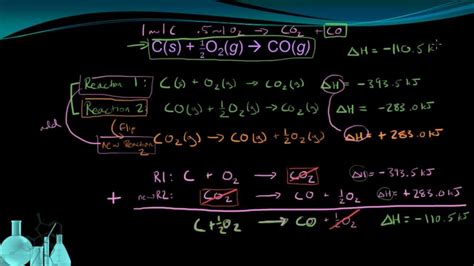 1 m C .5 m O₂ → CO₂ + CO
C(s) + ½O₂(g) → CO(g) ΔH = -110.5 kJ
Reaction 1: C(s) + O₂(g) → CO₂(g) ΔH = -393.5 kJ
Reaction 2 CO(g) + ½O₂(g) → CO₂(g) ΔH = -283.0 kJ
add
Flip
new Reaction 2 CO₂(g) → CO(g) + ½O₂(g) ΔH = +283.0 kJ
R1: C + O₂ → CO₂ ΔH = -393.5 kJ
+ new R2: CO₂ → CO + ½O₂ ΔH = +283.0 kJ
C + ½O₂ → CO + ½O₂ ΔH = -110.5 kJ